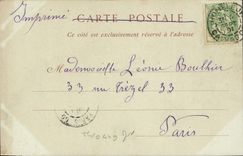 Imprimé
CARTE POSTALE
Ce côté est exclusivement réservé à l'adresse
Mademoiselle Léonie
33 rue Trézel 33
Paris